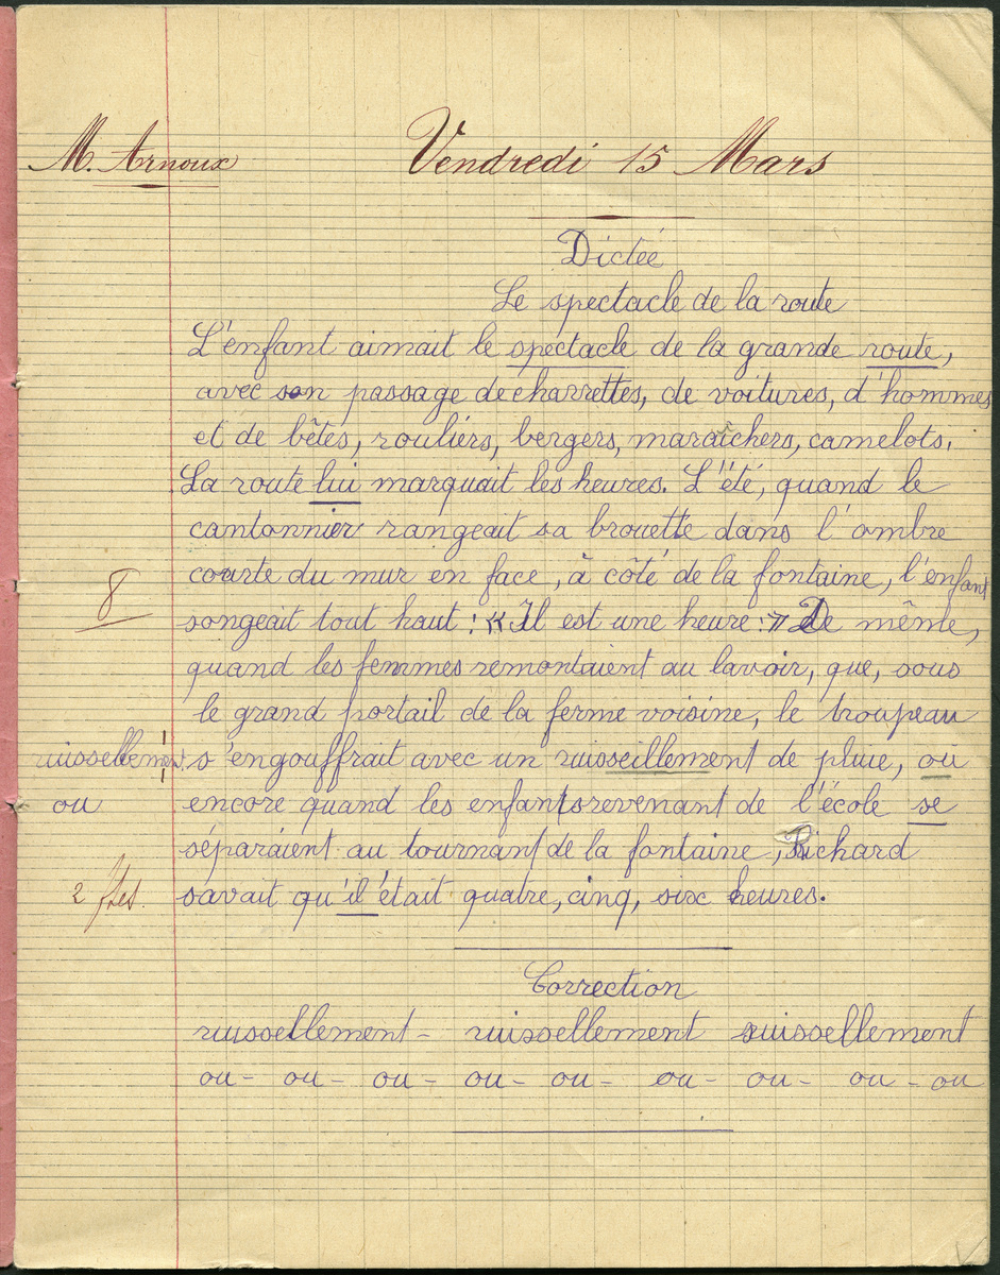 M. Arnoux
Vendredi 15 Mars
Dictée
Le spectacle de la route
L'enfant aimait le spectacle de la grande route,
avec son passage de charrettes, de voitures, d'hommes
et de bêtes, rouliers, bergers, maraîchers, camelots.
La route lui marquait les heures. L'été, quand le
cantonnier rangeait sa brouette dans l'ombre
courte du mur en face, à côté de la fontaine, l'enfant
8
songeait tout haut : « Il est une heure : » De même,
quand les femmes remontaient au lavoir, que, sous
le grand portail de la ferme voisine, le troupeau
ruissellement
s'engouffrait avec un ruisseillement de pluie, où
ou
encore quand les enfants revenant de l'école se
séparaient au tournant de la fontaine, Richard
2 ftes.
savait qu'il était quatre, cinq, six heures.
Correction
ruissellement - ruissellement ruissellement
ou - ou - ou - ou - ou - ou - ou - ou - ou